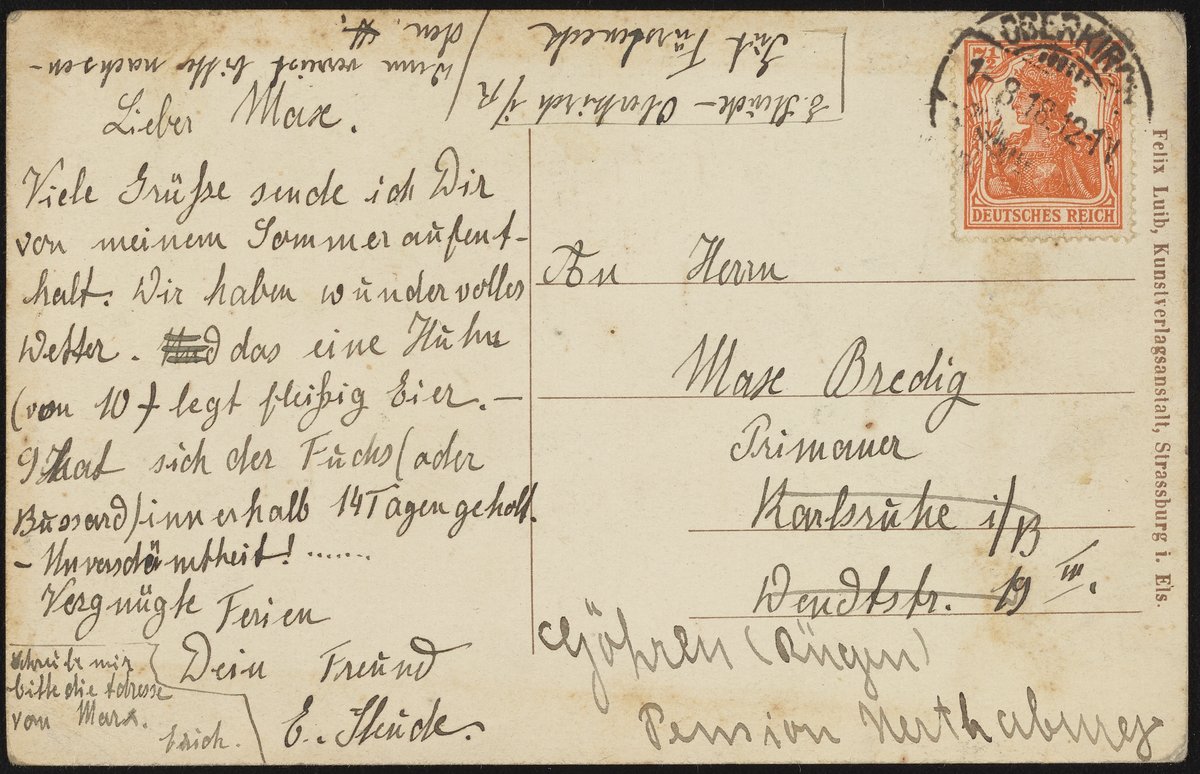 Lieber Max.
Viele Grüße sende ich Dir
von meinem Sommeraufent-
halt. Wir haben wundervolles
Wetter. das eine Huhn
(von 10) legt fleißig Eier. —
9 hat sich der Fuchs (oder
Bussard) innerhalb 14 Tagen geholt.
- Unverschämtheit! .......
Vergnügte Ferien
Dein Freund
E.
Schreibe mir
bitte die Adresse
von Marx.
Erich.
Wenn verreist bitte nachsen-
den.
Gut Fürsteneck
Oberkirch i/B
OBERKIRCH
8.18.12-1
7½
DEUTSCHES REICH
An Herrn
Max Bredig
Primaner
Karlsruhe i/B
Wendtstr. 19 III.
Göhren (Rügen)
Pension Nerthaburg
Felix Luib, Kunstverlagsanstalt, Strassburg i. Els.